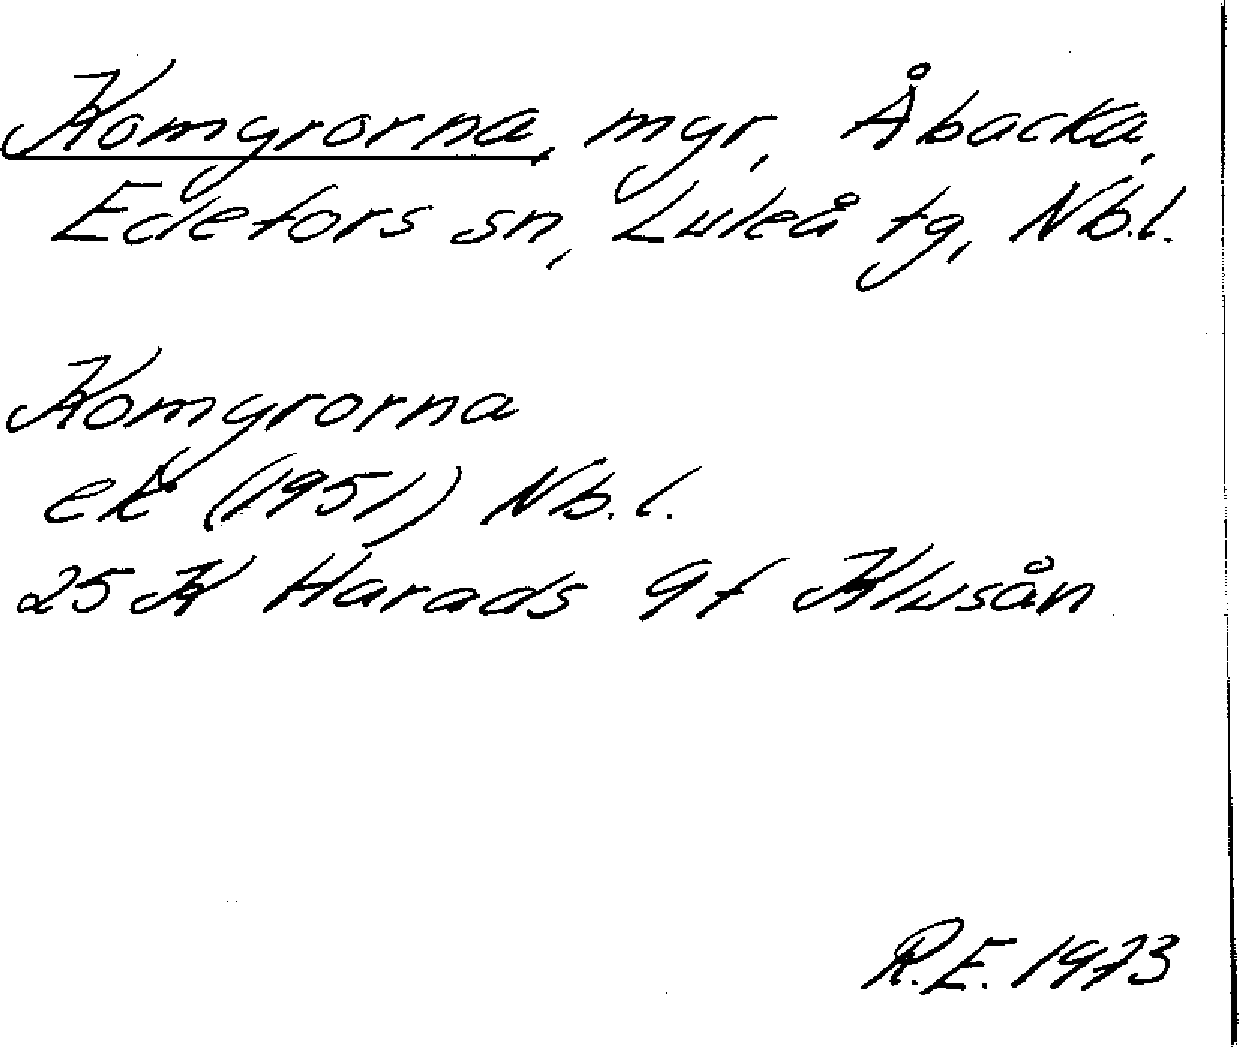 Komyrorna, myr, Åbacka,
Edefors sn, Luleå tg, Nb.l.
Komyrorna
ek (1951) Nb.l.
25 K Harads 9f Klusån
R.E. 1973